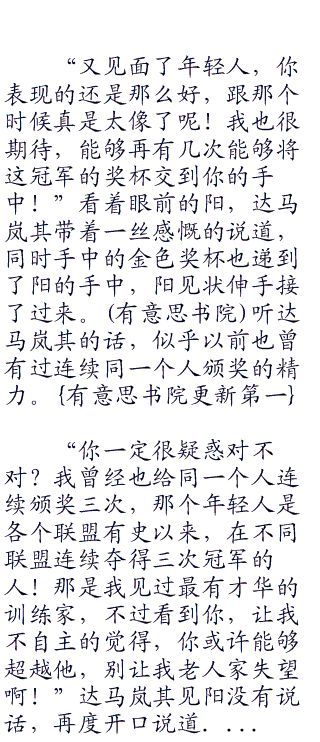 “又见面了年轻人，你
表现的还是那么好，跟那个
时候真是太像了呢！我也很
期待，能够再有几次能够将
这冠军的奖杯交到你的手
中！”看着眼前的阳，达马
岚其带着一丝感慨的说道，
同时手中的金色奖杯也递到
了阳的手中，阳见状伸手接
了过来。(有意思书院)听达
马岚其的话，似乎以前也曾
有过连续同一个人颁奖的精
力。{有意思书院更新第一}
“你一定很疑惑对不
对？我曾经也给同一个人连
续颁奖三次，那个年轻人是
各个联盟有史以来，在不同
联盟连续夺得三次冠军的
人！那是我见过最有才华的
训练家，不过看到你，让我
不自主的觉得，你或许能够
超越他，别让我老人家失望
啊！”达马岚其见阳没有说
话，再度开口说道．．．．